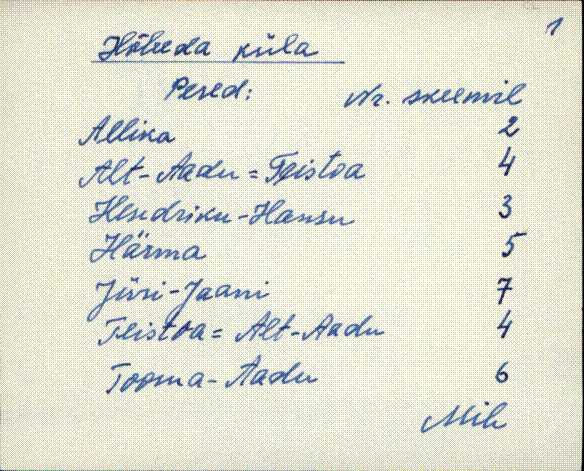 1
Hõbeda küla
Pered: Nr. skeemil
Allika 2
Alt-Aadu = Teistoa 4
Hendriku-Hansu 3
Härma 5
Jüri-Jaani 7
Teistoa = Alt-Aadu 4
Tooma-Aadu 6